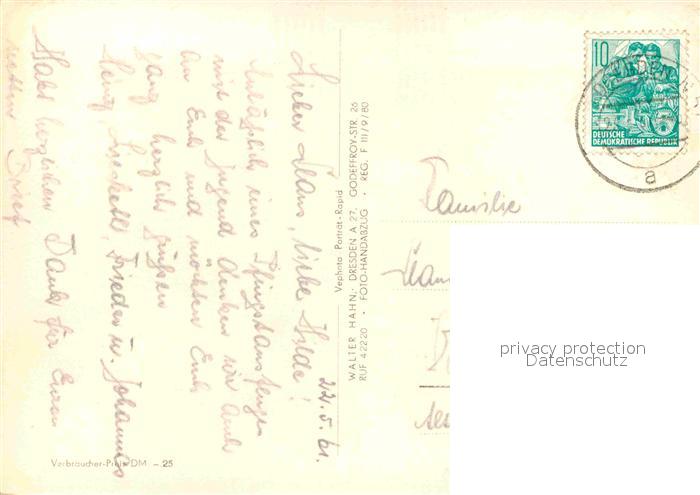 22.5.61.
Lieber Hans, liebe Hilde!
Anläßlich eines Pfingstausfluges
mit der Jugend denken wir auch
an Euch und möchten Euch
ganz herzlich grüßen
Heinz, Liesbeth, Frieder u. Johannes
Habt herzlichen Dank für Euren
Brief
Verbraucher-Preis DM -.25
Vephota Porträt-Rapid
WALTER HAHN, DRESDEN A 27, GODEFFROY-STR. 26
RUF 42220 • FOTO-HANDABZUG • REG. F III/9/80
10
DEUTSCHE
DEMOKRATISCHE REPUBLIK
a
Familie
privacy protection
Datenschutz